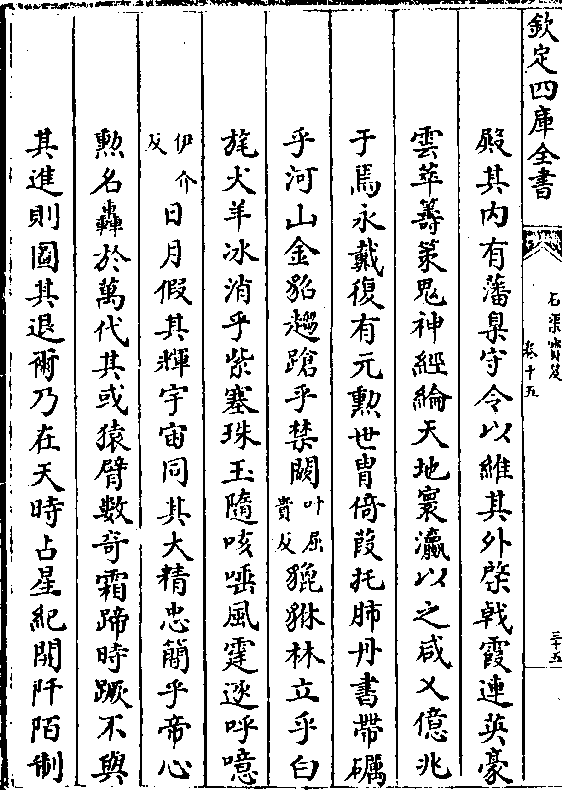 欽定四庫全書
石渠寶笈
卷十五
三十五
殿其内有藩臬守令以維其外棨戟霞連英豪
雲萃籌策鬼神經綸天地寰瀛以之咸乂億兆
于焉永戴復有元勲世胄倚葭托肺丹書帶礪
乎河山金貂趨蹌乎禁闕叶屈貴反貔貅林立乎白
旄犬羊冰消乎紫塞珠玉隨咳唾風霆逐呼噫
伊介反日月假其輝宇宙同其大精忠簡乎帝心
勲名轟於萬代其或猿臂數奇霜蹄時蹶不與
其進則圖其退爾乃在天時占星紀開阡陌制